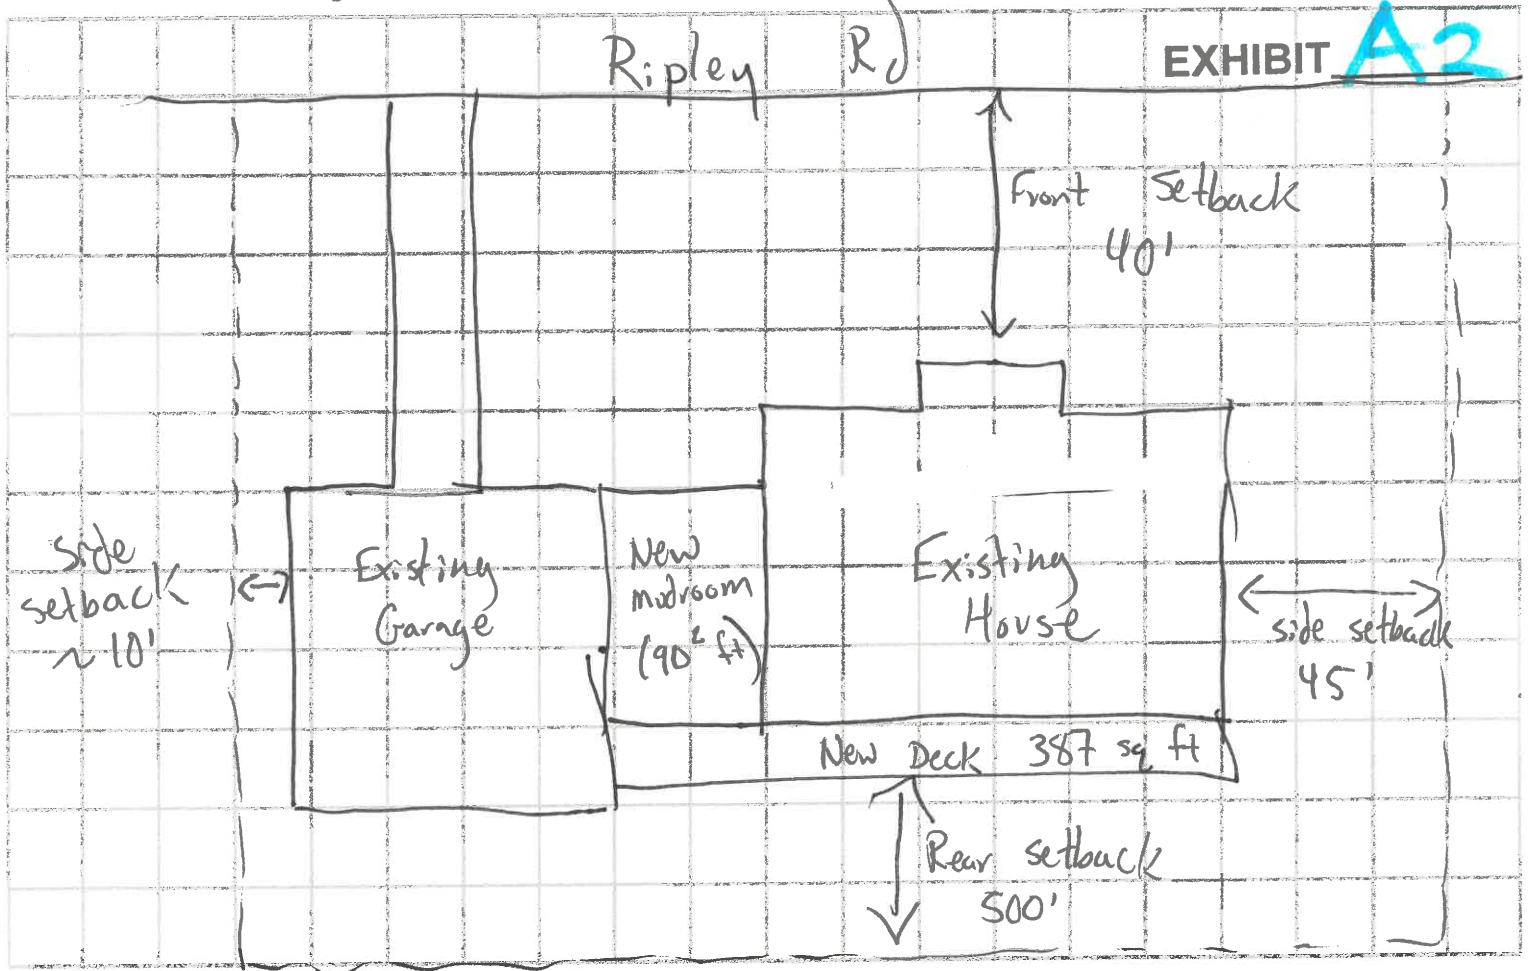 Ripley Rd
EXHIBIT A2
Front Setback
40'
Side
setback
~10'
Existing
Garage
New
mudroom
(90² ft)
Existing
House
side setback
45'
New Deck 387 sq ft
Rear setback
500'